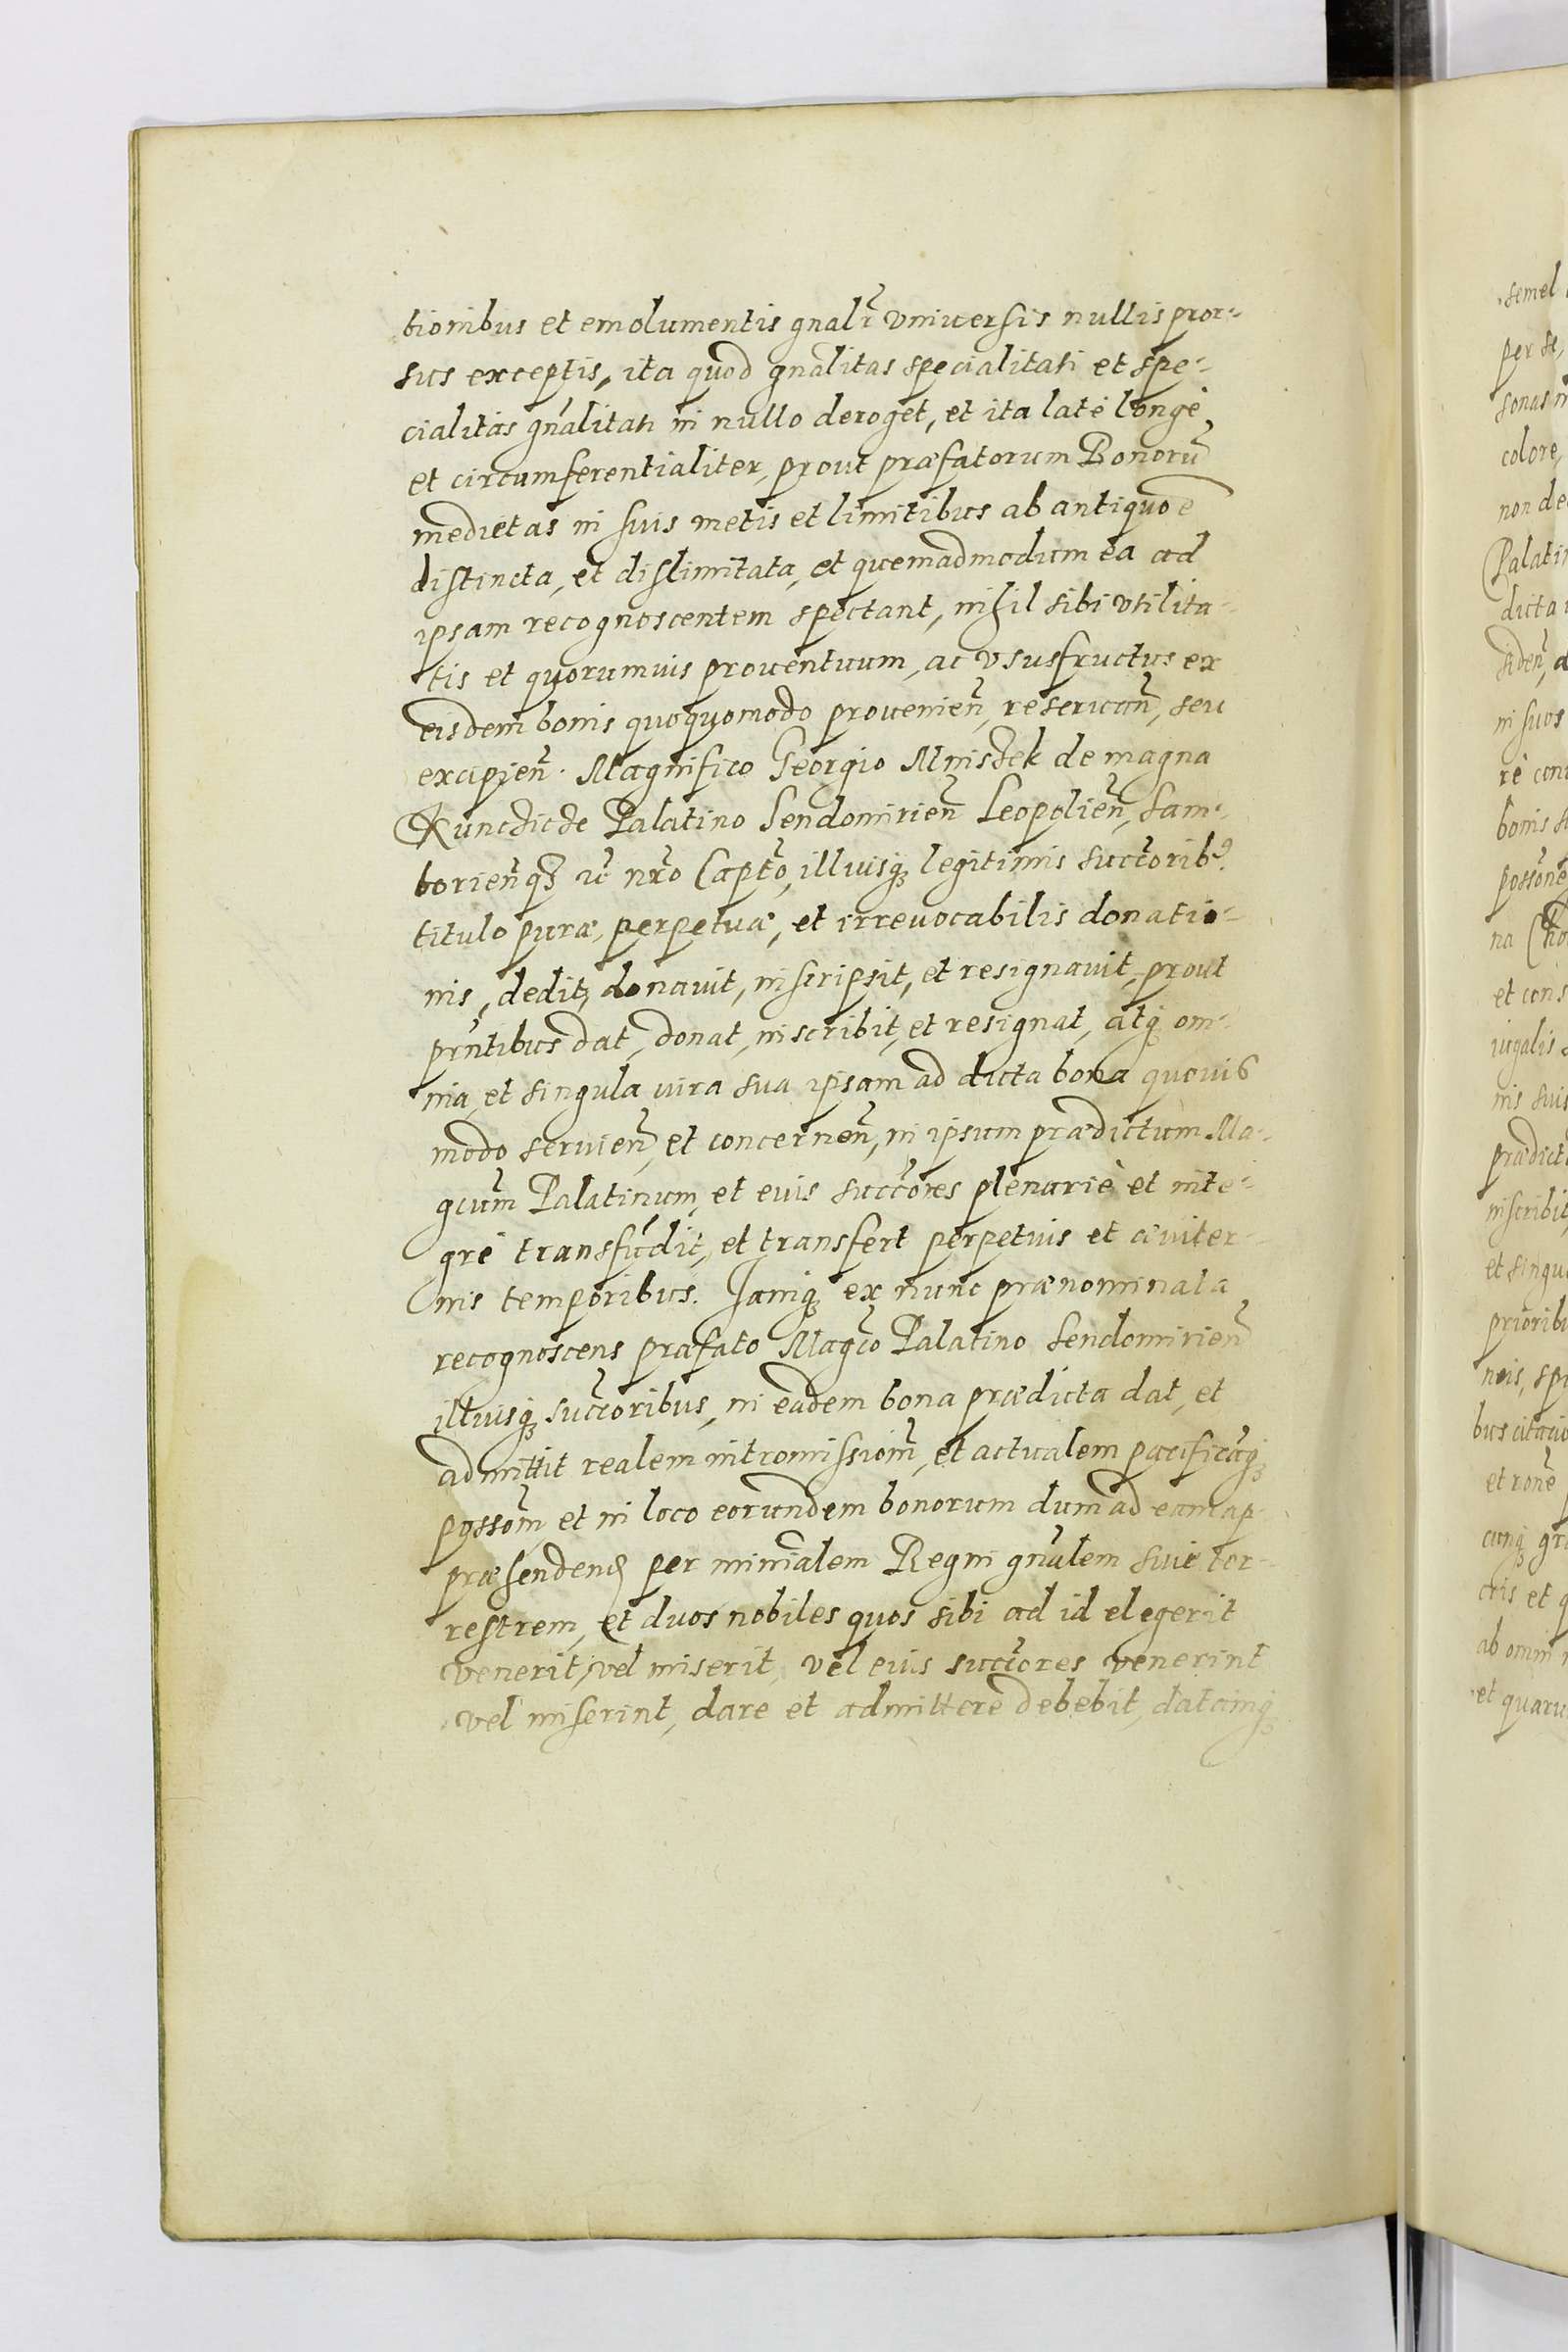 tionibus et emolumentis gnalr̃ vniuersis nullis pror-
sus exceptis, ita quod gnãlitas specialitati et spe-
cialitas gnãlitati in nullo deroget, et ita latè longè
et circumferentialiter, prout præfatorum Bonorũ
medietas in suis metis et limitibus ab antiquo ẽ
distincta, et dislimitata, et quemadmodum ea ad
ipsam recognoscentem spectant, nihil sibi vtilita-
tis et quorumuis prouentuum, ac vsusfructus ex
eisdem bonis quoquomodo prouenieñ, reseruañ, seu
excipieñ. Magnifico Georgio Mniszek de magna
Kunczicze Palatino Sendomirieñ Leopolieñ, Sam-
borieñqȝ nrõ Captõ, illiusqȝ legitimis succõribꝰ
titulo puræ, perpetuæ, et irreuocabilis donatio-
nis, dedit, donauit, inscripsit, et resignauit, prout
pñtibus dat, donat, inscribit, et resignat, atqȝ om-
nia, et singula iura sua ipsam ad dicta bona quouis
modo seruieñ, et concerneñ, in ipsum prædictum Ma-
gcũm Palatinum, et eius succõres plenariè et inte-
grè transfũdit, et transfert perpetuis et æuiter-
nis temporibus. Jamqȝ ex nunc prænominata
recognoscens præfato Magcõ Palatino Sendomirieñ
illiusqȝ succõribus, in eadem bona prædicta dat, et
admittit realem intromissioñm, et actualem pacificãqȝ
possoñm et in loco eorundem bonorum dum ad eam ap-
præhendenđ per minĩalem Regni gnãlem siue ter-
restrem, et duos nobiles quos sibi ad id elegerit
venerit, vel miserit, vel eius succõres venerint
vel miserint, dare et admittere debebit, datamqȝ
semel
per se,
sonas
colore,
non de
Palatin
dicta
in suos
rè con
bonis
possonẽ
na
et cons
iugalis
nis suis
prædict
inscribit
et singu
prioribu
nis,
bus citatio
et ronẽ
cunqȝ
cris et
ab omni
et quaru